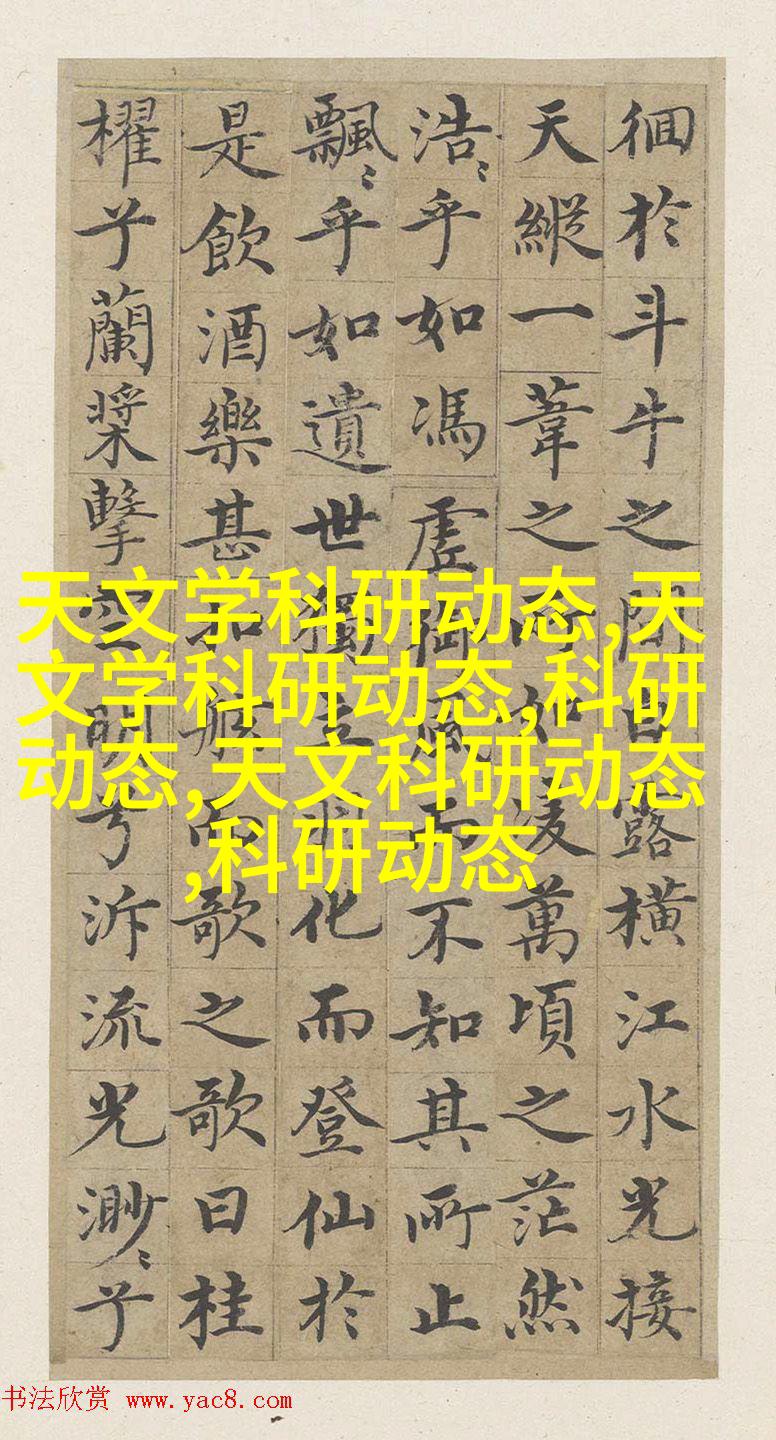 徊於斗牛之間白露橫江水光接
天縱一葦之所如凌萬頃之茫然
浩〻乎如馮虛御風而不知其所止
飄〻乎如遺世獨立羽化而登仙於
是飲酒樂甚扣舷而歌之歌曰桂
櫂兮蘭槳擊空明兮泝流光渺〻兮
天文学科研动态,天
文学科研动态,科研
动态,天文科研动态
,科研动态
书法欣赏 www.yac8.com